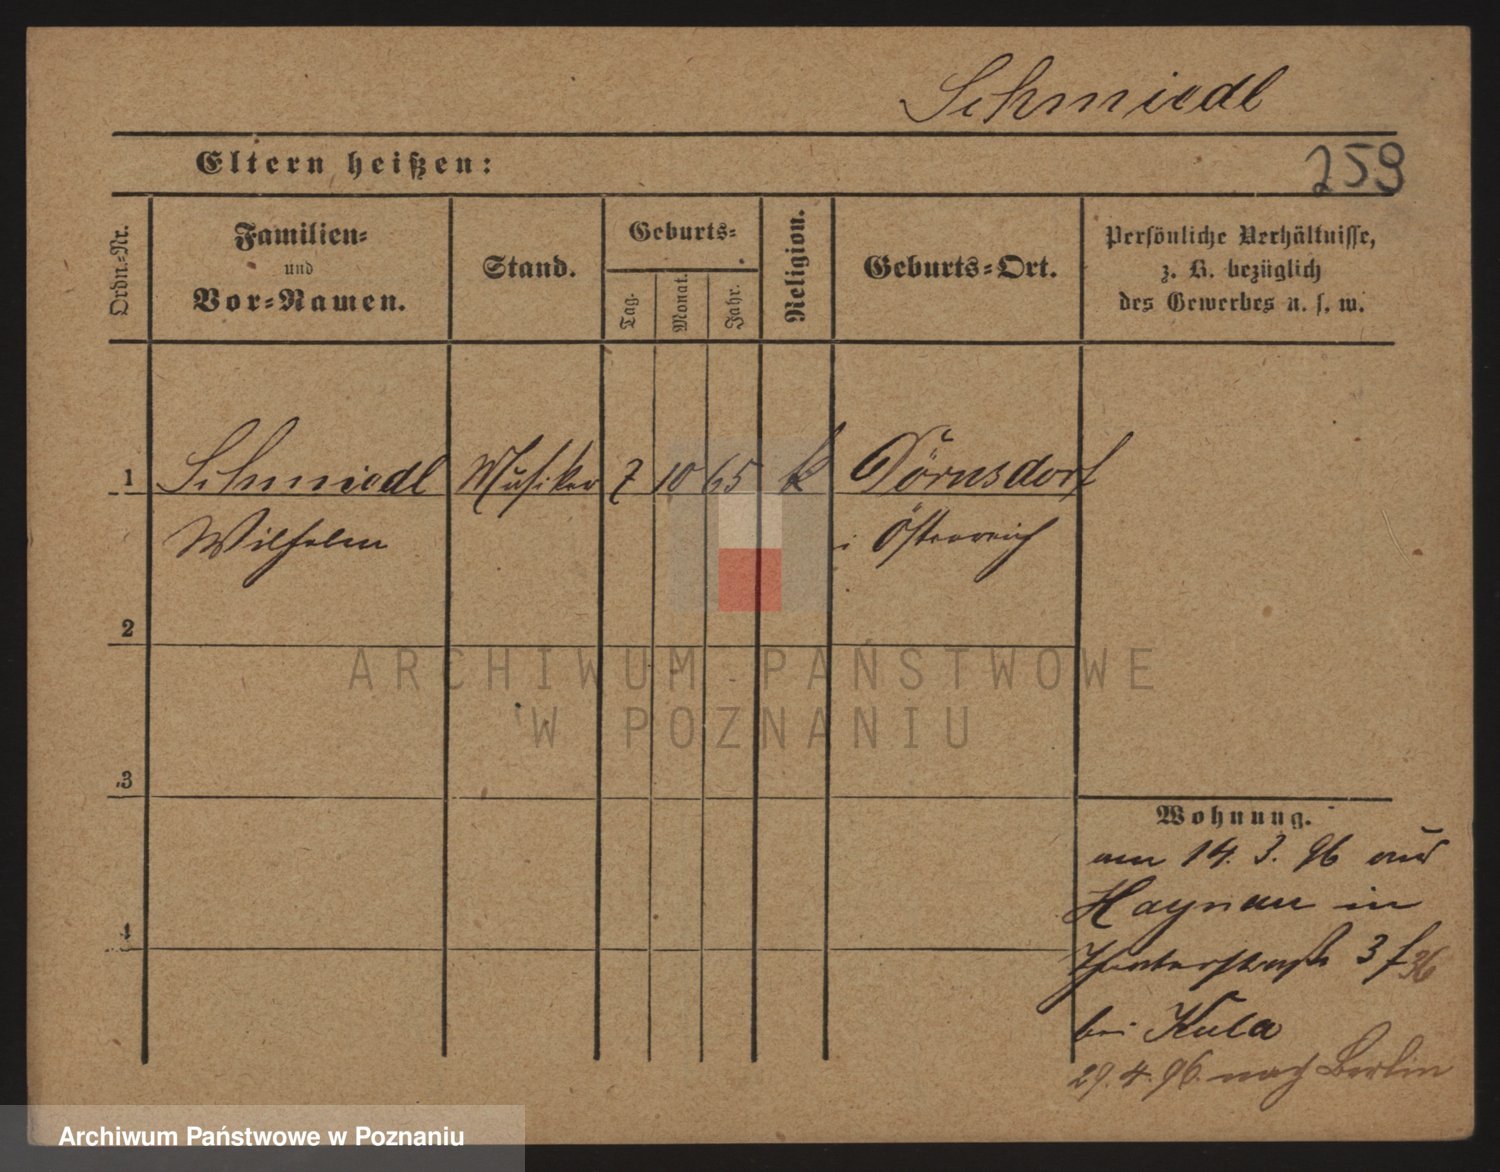 Schmiedl
Eltern heißen:
259
Ordn.-Nr.
Familien-
und
Vor-Namen.
Stand.
Geburts-
Tag.
Monat.
Jahr.
Religion.
Geburts-Ort.
Persönliche Verhältnisse,
z. B. bezüglich
des Gewerbes u. s. w.
1 Schmiedl Musiker 7 10 65 k Dörnsdorf
Wilhelm i Österreich
2
3
4
Wohnung.
am 14. 3. 96 aus
Haynau in
Theaterstraße 3 f 36
bei Kula
29. 4. 96. nach Berlin
ARCHIWUM PAŃSTWOWE
W POZNANIU
Archiwum Państwowe w Poznaniu